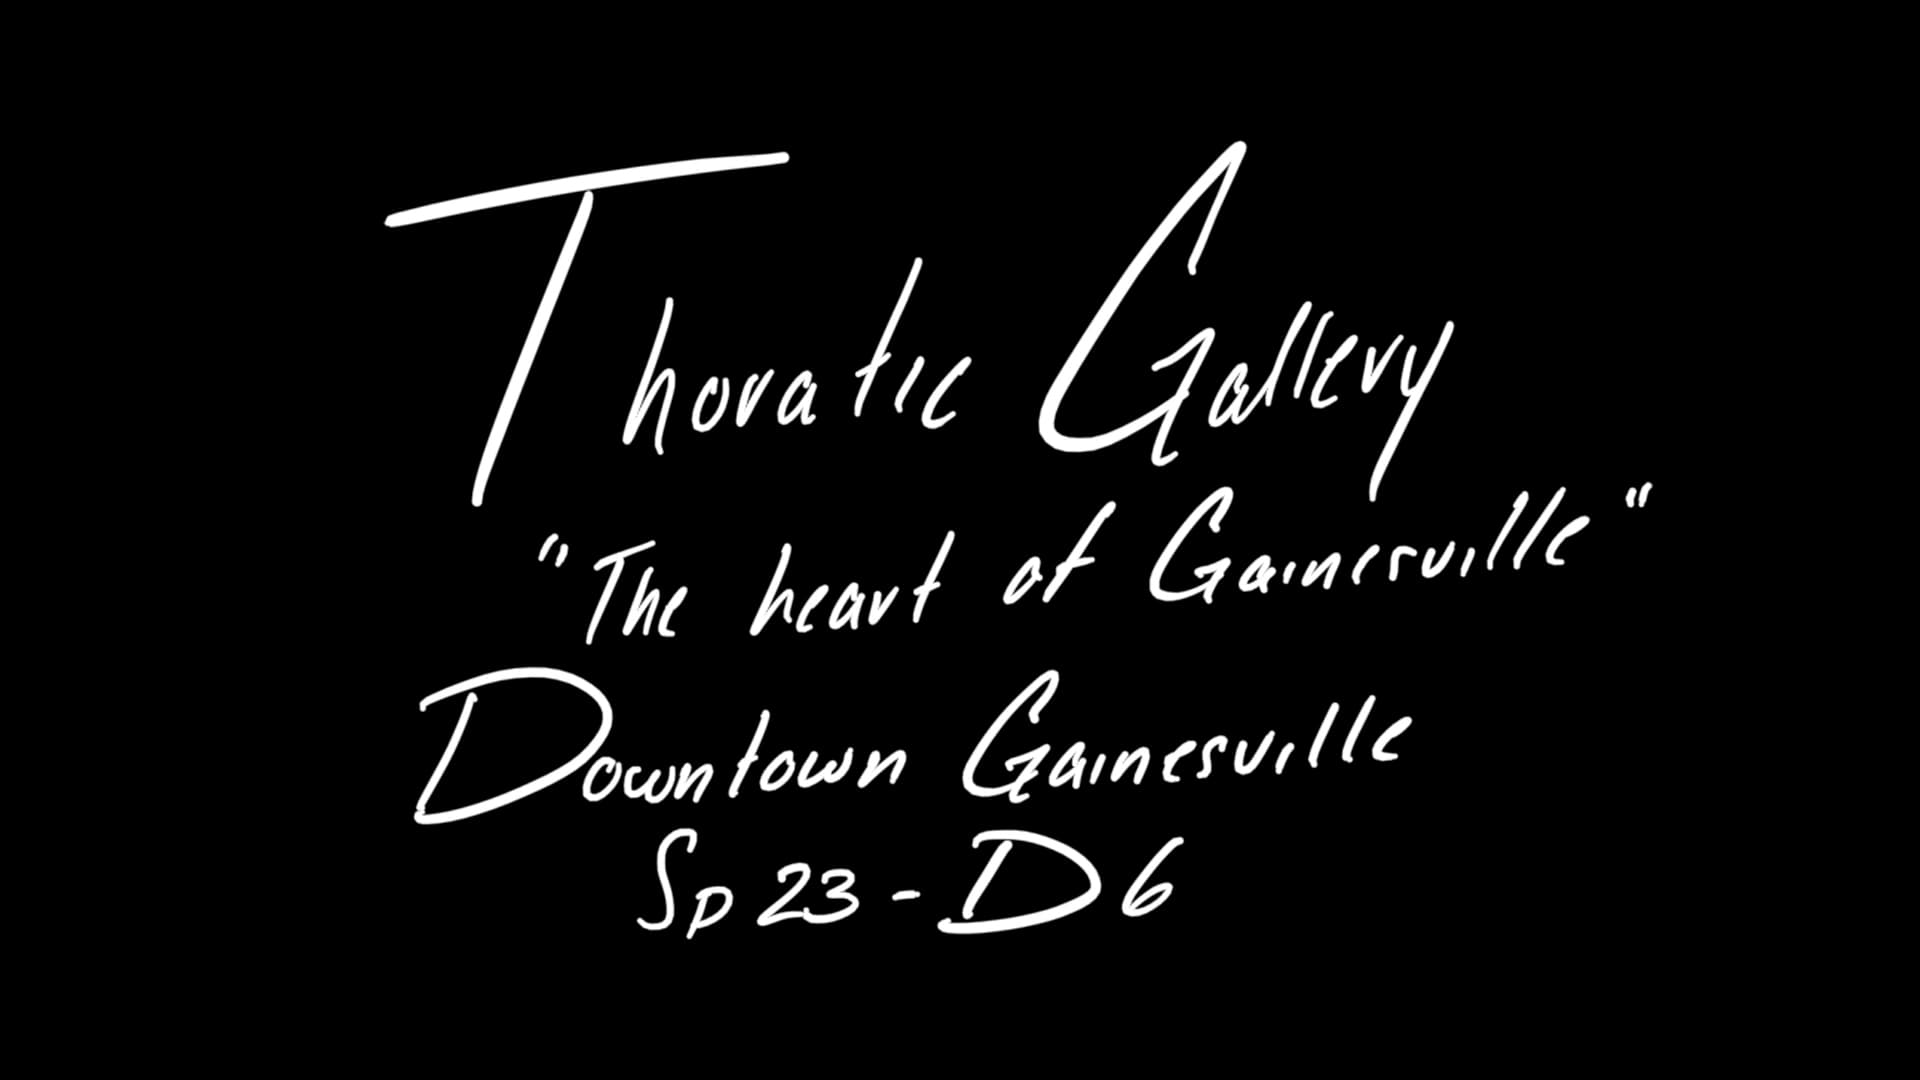 Thoratic Gallery
"The heart of Gainesville"
Downtown Gainesville
Sp23-D6